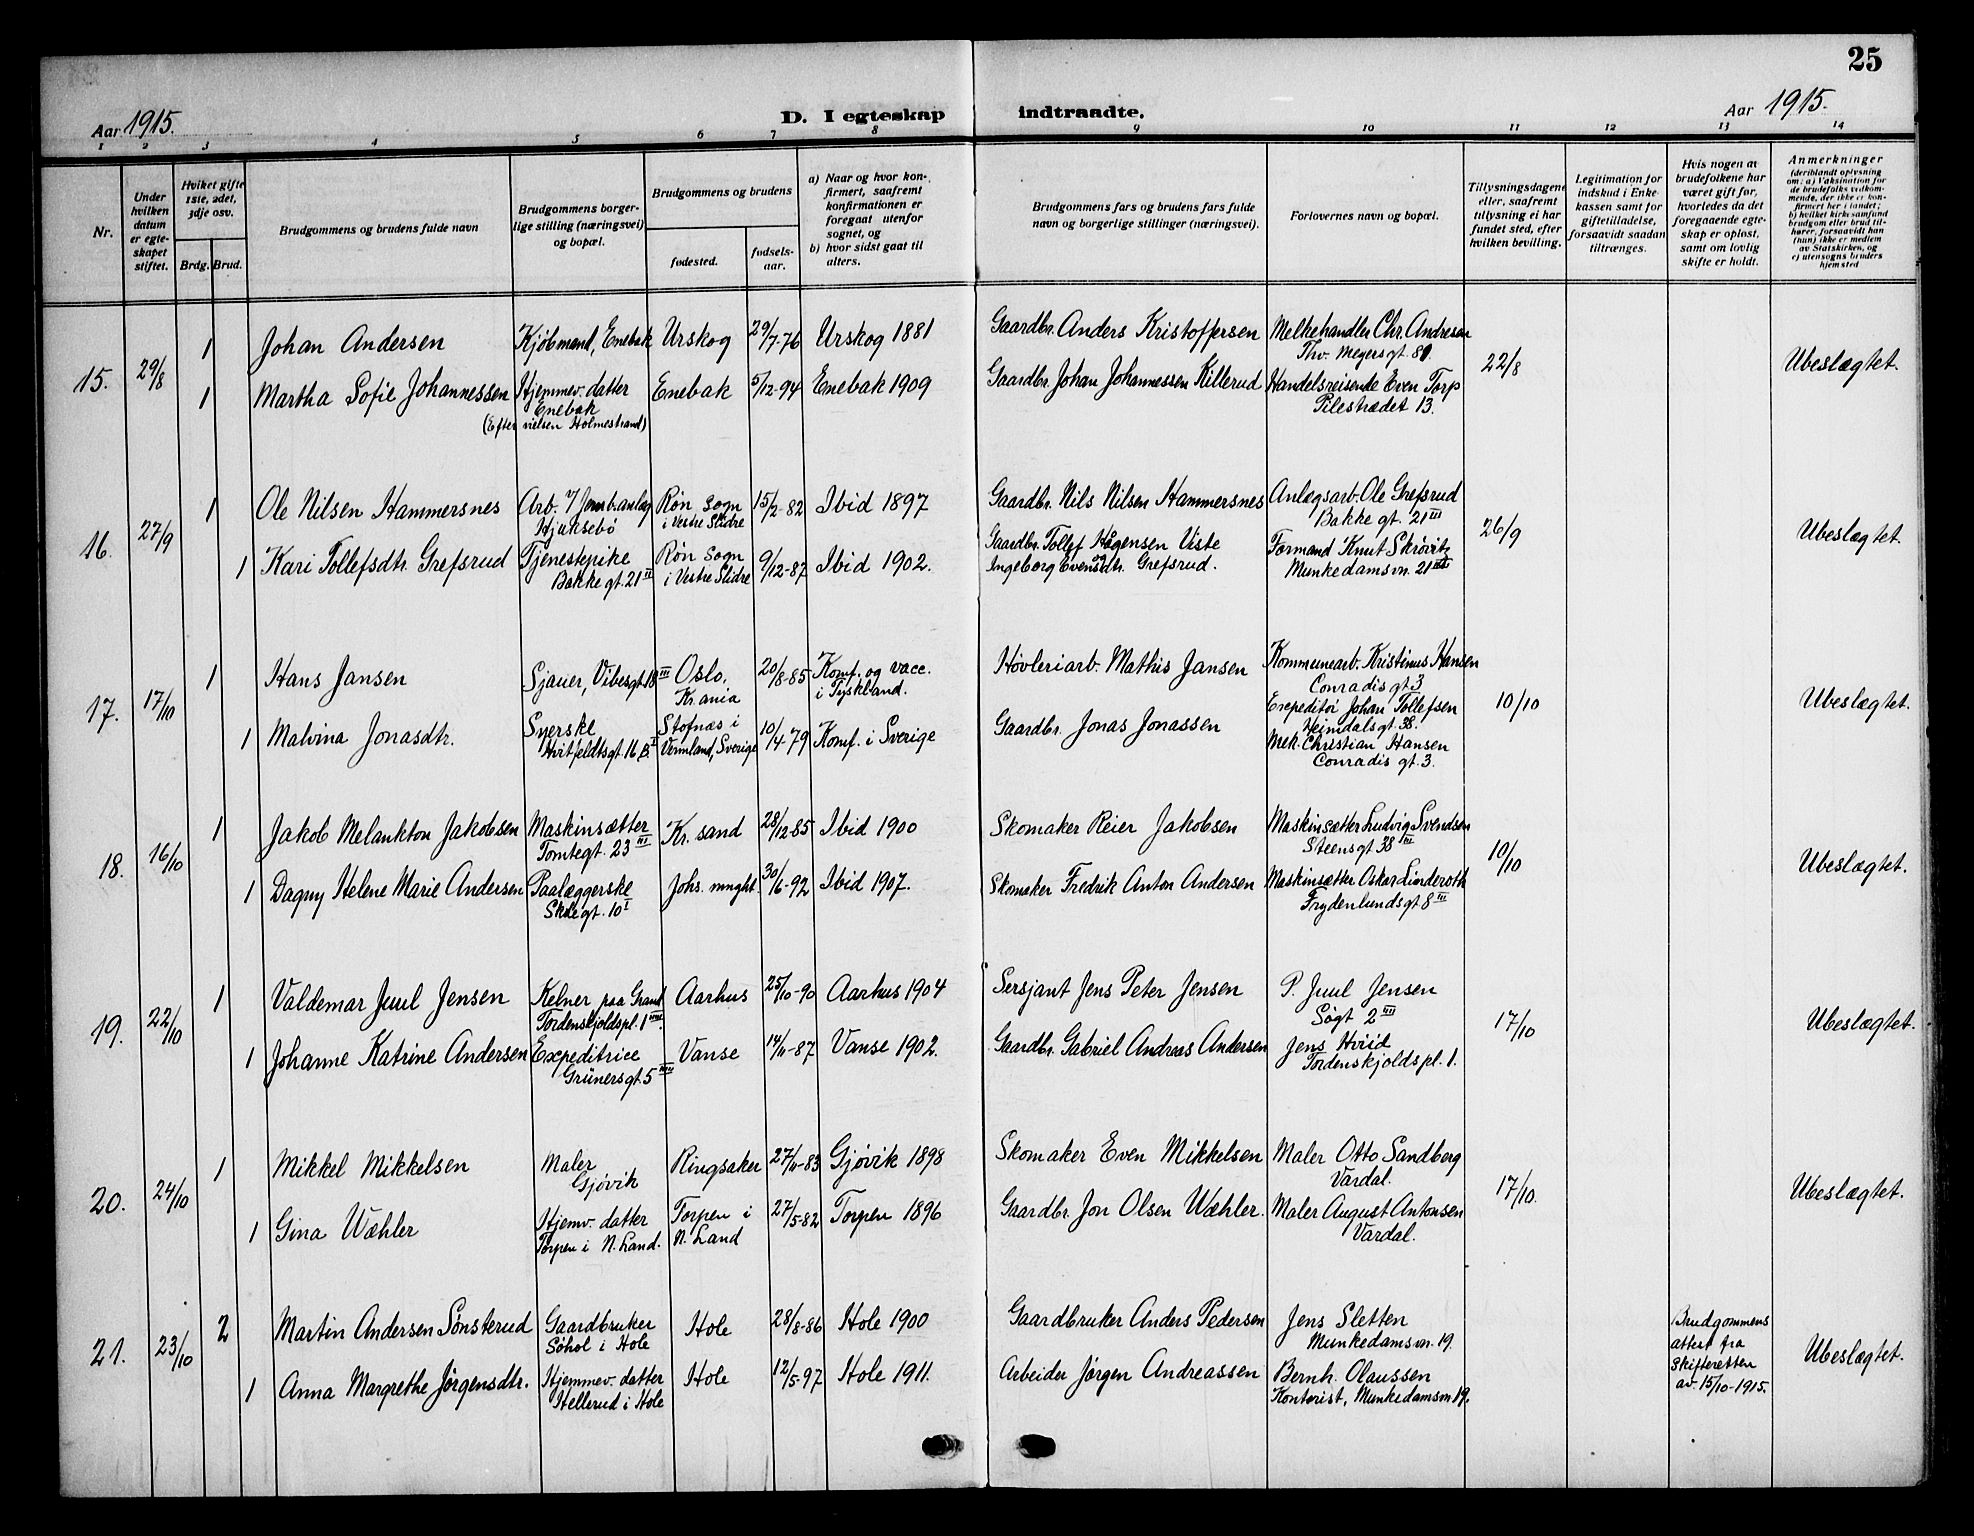 25
Aar 1915.
D. I egteskap indtraadte.
Aar 1915.
1 2 3 4 5 6 7 8 9 10 11 12 13 14
Nr.
Under
hvilken
datum
er egte-
skapet
stiftet.
Hviket gifte
1ste, 2det,
3dje osv.
Brdg. Brud.
Brudgommens og brudens fulde navn
Brudgommens borger-
lige stilling (næringsvei)
og bopæl.
Brudgommens og brudens
fødested.
fødsels-
aar.
a) Naar og hvor kon-
firmert, saafremt
konfirmationen er
foregaat utenfor
sognet, og
b) hvor sidst gaat til
alters.
Brudgommens fars og brudens fars fulde
navn og borgerlige stillinger (næringsvei).
Forlovernes navn og bopæl.
Tillysningsdagene
eller, saafremt
tillysning ei har
fundet sted, efter
hvilken bevilling.
Legitimation for
indskud i Enke-
kassen samt for
giftetilladelse,
forsaavidt saadan
tiltrænges.
Hvis nogen av
brudefolkene har
været gift før,
hvorledes da det
foregaaende egte-
skap er opløst,
samt om lovlig
skifte er holdt.
Anmerkninger
(deriblandt oplysning
om: a) Vaksination for
de brudefolks vedkom-
mende, der ikke er kon-
firmert her i landet;
b) hvilket kirkesamfund
brudgom eller brud til-
hører, forsaavidt han
(hun) ikke er medlem
av Statskirken, og
c) utensogns bruders
hjemsted
15. 29/8
1 Johan Andersen
Kjøbmand, Enebak
Urskog 29/7-76 Urskog 1881
Gaardbr. Anders Kristoffersen
Melkehandler Chr. Andresen
Thv. Meyersgt. 81.
22/8
Ubeslægtet.
1 Martha Sofie Johannessen
Hjemmev. datter
Enebak
(Efter vielsen Holmestrand)
Enebak 5/12-94 Enebak 1909
Gaardbr. Johan Johannessen Killerud
Handelsreisende Even Torp
Pilestrædet 13.
16. 27/9
1 Ole Nilsen Hammersnes
Arb. v/ Jernb.anlæg
Hjuksebø
Røn Sogn
i Vestre Slidre
15/2-82 Ibid 1897
Gaardbr. Nils Nilsen Hammersnes
Anlægsarb. Ole Grefsrud
Bakke gt. 21 III
26/9
Ubeslægtet.
1 Kari Tollefsdtr. Grefsrud
Tjenestepike
Bakke gt. 21 II
Røn Sogn
i Vestre Slidre
9/12-87 Ibid 1902.
Gaardbr. Tollef Hågensen Viste
og
Ingeborg Evensdtr. Grefsrud.
Formand Knut Skrøvitz
Munkedamsvn. 21
17. 17/10
1 Hans Jansen
Sjauer, Vibesgt. 18 III
Oslo,
Kr.ania
20/8-85
Konf. og vacc.
i Tyskland.
Høvleriarb. Mathis Jansen
Kommunearb. Kristinus Hansen
Conradis gt. 3
10/10
Ubeslægtet.
1 Malvina Jonasdtr.
Syerske
Hvitfeldtsgt. 16 B. I
Stofnæs i
Vermland, Sverige
10/4-79 Konf. i Sverige
Gaardbr. Jonas Jonassen
Expeditør Johan Tollefsen
Heimdalsgt. 38.
Mek. Christian Hansen
Conradis gt. 3.
18. 16/10
1 Jakob Melankton Jakobsen
Maskinsætter
Tomtegt. 23 III
Kr. sand 28/12-85 Ibid 1900
Skomaker Reier Jakobsen
Maskinsætter Ludvig Svendsen
Steensgt 38 III
10/10
Ubeslægtet.
1 Dagny Helene Marie Andersen
Paalæggerske
Skolegt. 10 I
Johs. mnght. 30/6-92 Ibid 1907.
Skomaker Fredrik Anton Andersen
Maskinsætter Oskar Linderoth
Frydenlundsgt 8 III
19. 22/10
1 Valdemar Juul Jensen
Kelner paa Grand
Tordenskjoldspl. 1
Aarhus 25/10-90 Aarhus 1904
Sersjant Jens Peter Jensen
P. Juul Jensen
Søgt 2 III
17/10
Ubeslægtet.
1 Johanne Katrine Andersen
Expeditrice
Grünersgt. 5
Vanse 14/11-87 Vanse 1902.
Gaardbr. Gabriel Andreas Andersen
Jens Hviid
Tordenskjolds pl. 1.
20. 24/10
1 Mikkel Mikkelsen
Maler
Gjøvik
Ringsaker 27/11-83 Gjøvik 1898
Skomaker Even Mikkelsen
Maler Otto Sandberg
Vardal.
17/10.
Ubeslægtet.
1 Gina Wæhler
Hjemv. datter
Torpen i N. Land.
Torpen i
N. Land
27/5-82 Torpen 1896
Gaardbr. Jon Olsen Wæhler.
Maler August Antonsen
Vardal.
21. 23/10
2 Martin Andersen Sønsterud
Gaardbruker
Søhol i Hole
Hole 28/8-86 Hole 1900
Gaardbruker Anders Pedersen
Jens Sletten
Munkedamsvn. 19.
Brudgommens
attest fra
Skifteretten
av. 15/10-1915.
Ubeslægtet.
1 Anna Margrethe Jørgensdtr.
Hjemmev. datter
Hellerud i Hole
Hole 12/5-97 Hole 1911.
Arbeider Jørgen Andreassen
Bernh. Olaussen
Kontorist, Munkedamsvn 19.